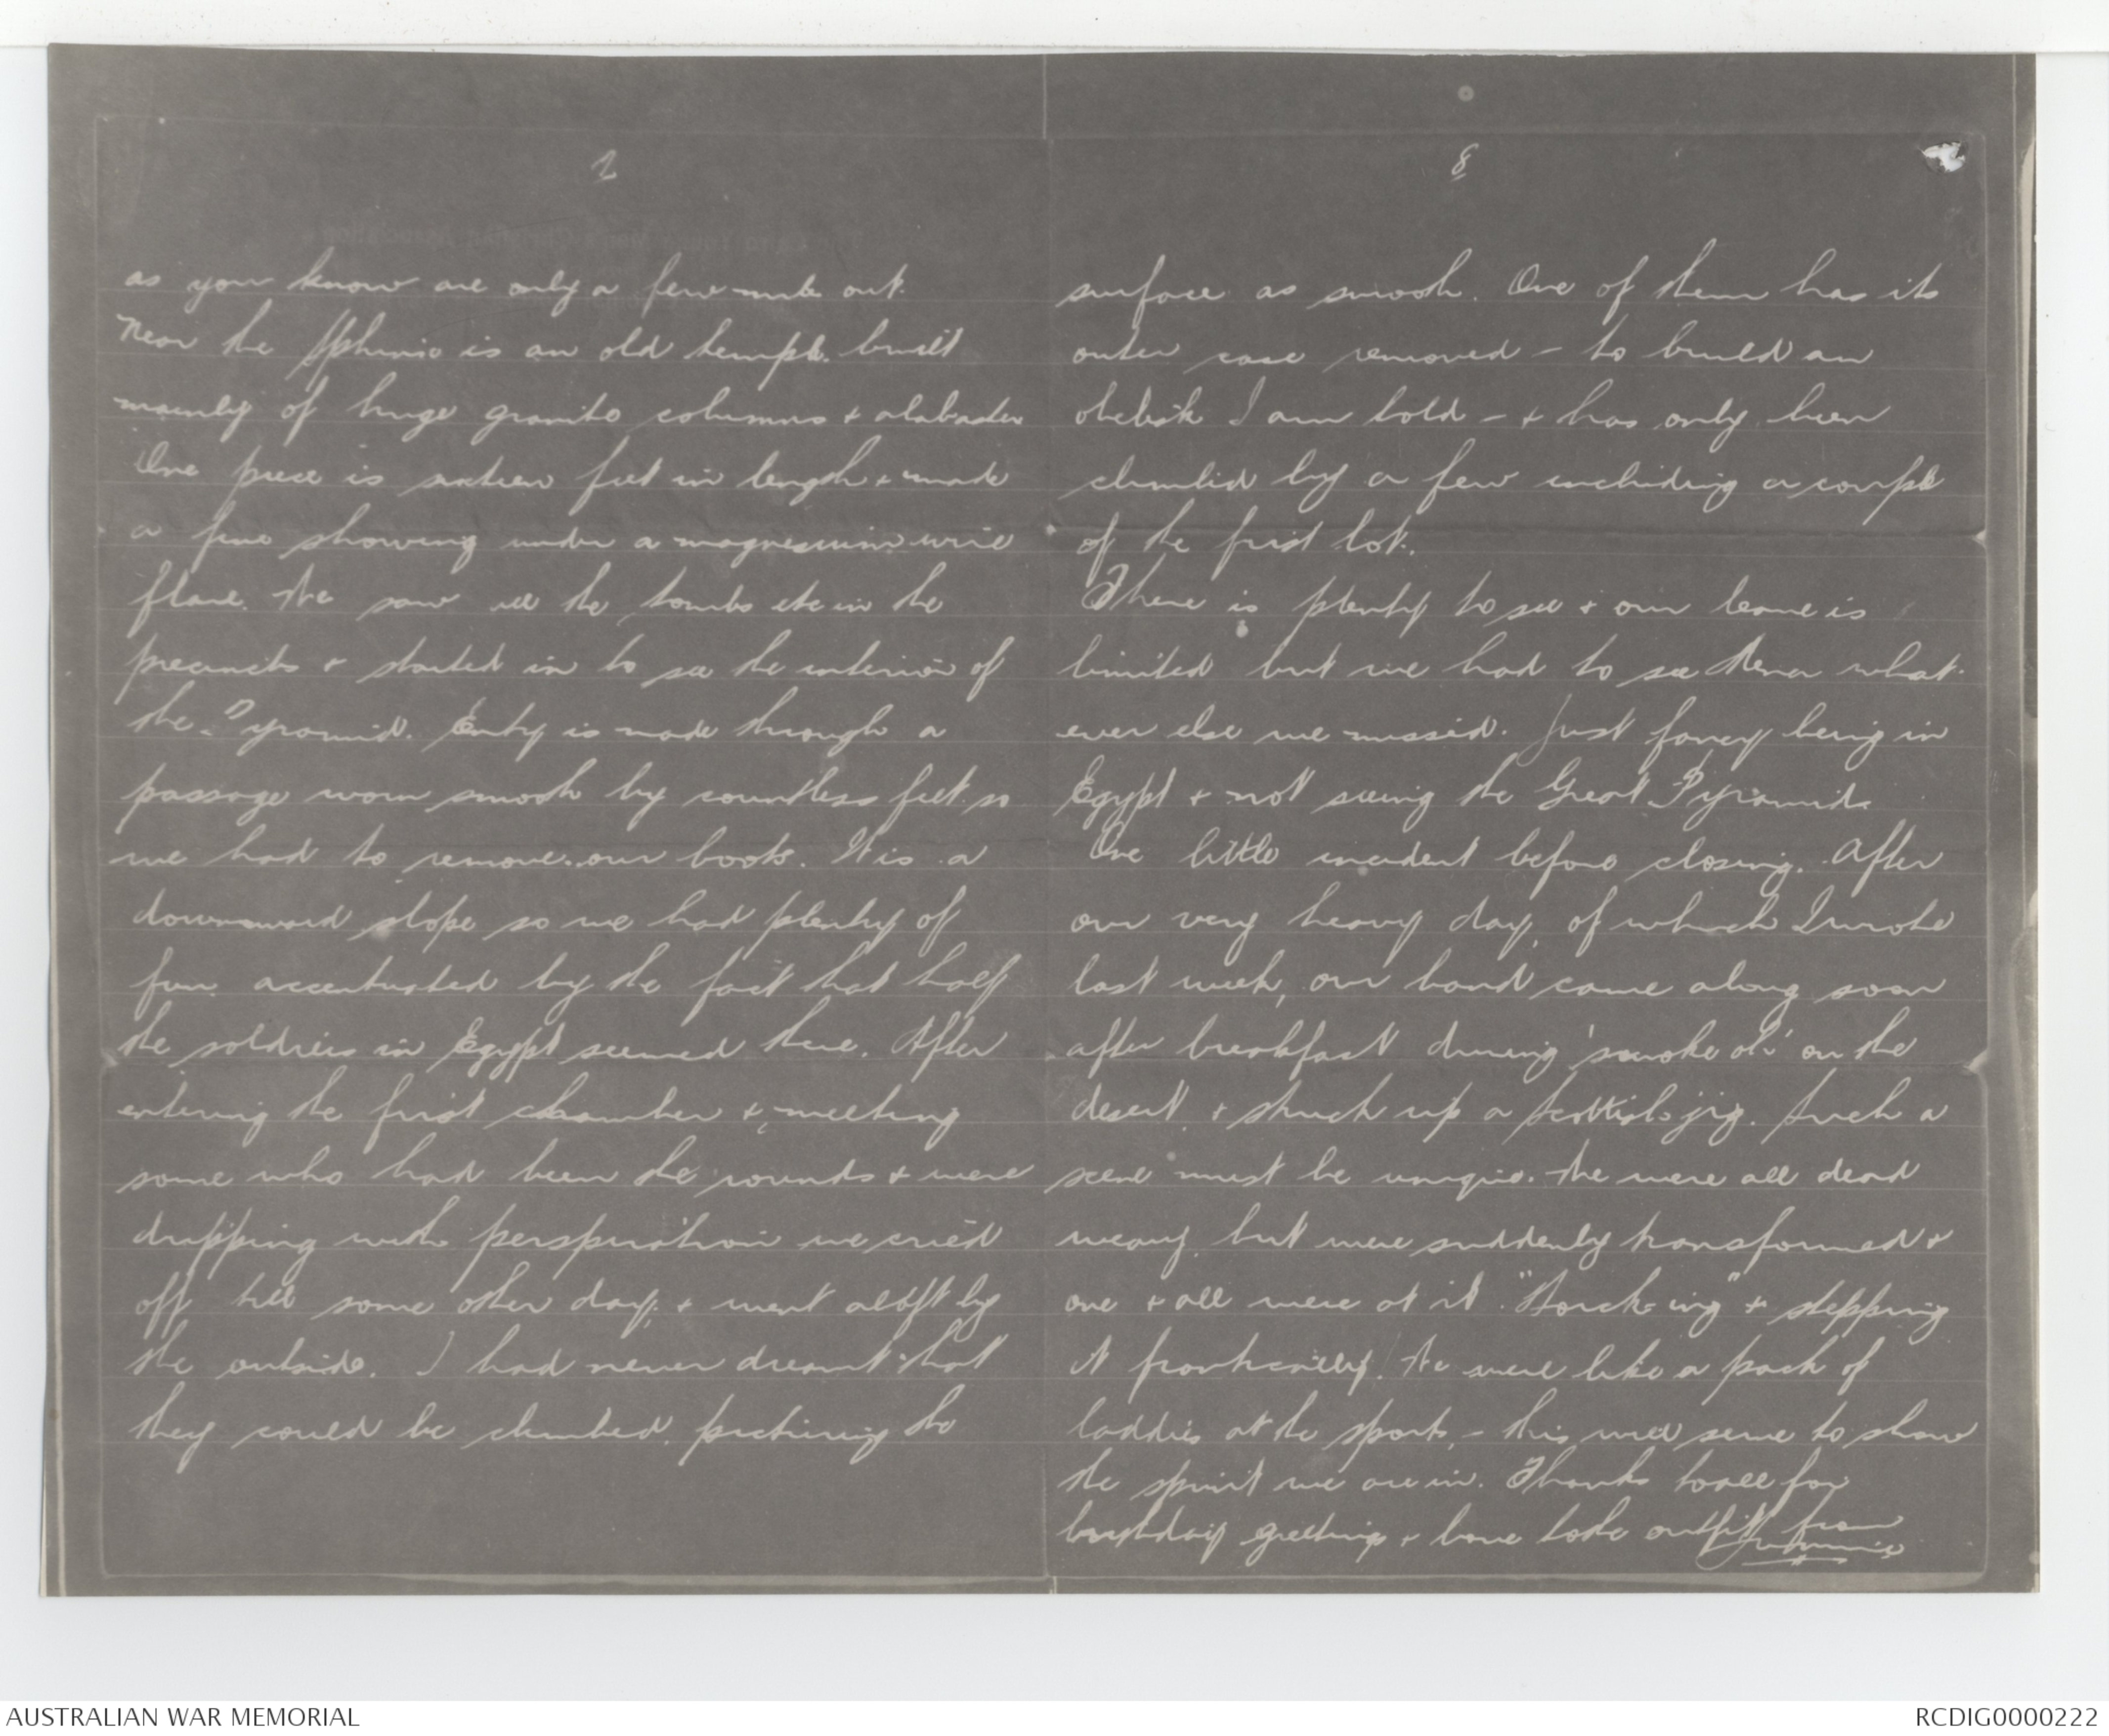 7
as you know are only a few miles out.
Near the Sphinx is an old temple built
mainly of huge granite columns & alabaster
One piece is sixteen feet in length & made
a fine showing under a magnesium wire
flare. We saw all the tombs etc in the
precincts & started in to see the interior of
the Pyramid. Entry is made through a
passage worn smooth by countless feet so
we had to remove our boots. It is a
downward slope so we had plenty of
fun accentuated by the fact that half
the soldiers in Egypt seemed there. After
entering the first chamber & meeting
some who had been the rounds & were
dripping with perspiration we cried
off till some other day, & went aloft by
the outside. I had never dreamt that
they could be climbed, picturing the
8
surface as smooth. One of them has its
outer case removed - to build an
obelisk I am told - & has only been
climbed by a few including a couple
of the first lot.
There is plenty to see & our leave is
limited but we had to see them what-
ever else we missed. Just fancy being in
Egypt & not seeing the Great Pyramid.
One little incident before closing. After
our very heavy day, of which I wrote
last week, our band came along soon
after breakfast during 'smoke oh' on the
desert, & struck up a Scottish jig. Such a
scene must be unique. We were all dead
weary, but were suddenly transformed &
one & all were at it. "Hooch-ing" & stepping
it frantically! We were like a pack of
laddies at the sports, - this will serve to show
the spirit we are in. Thanks to all for
birthday greetings & love to the outfit from